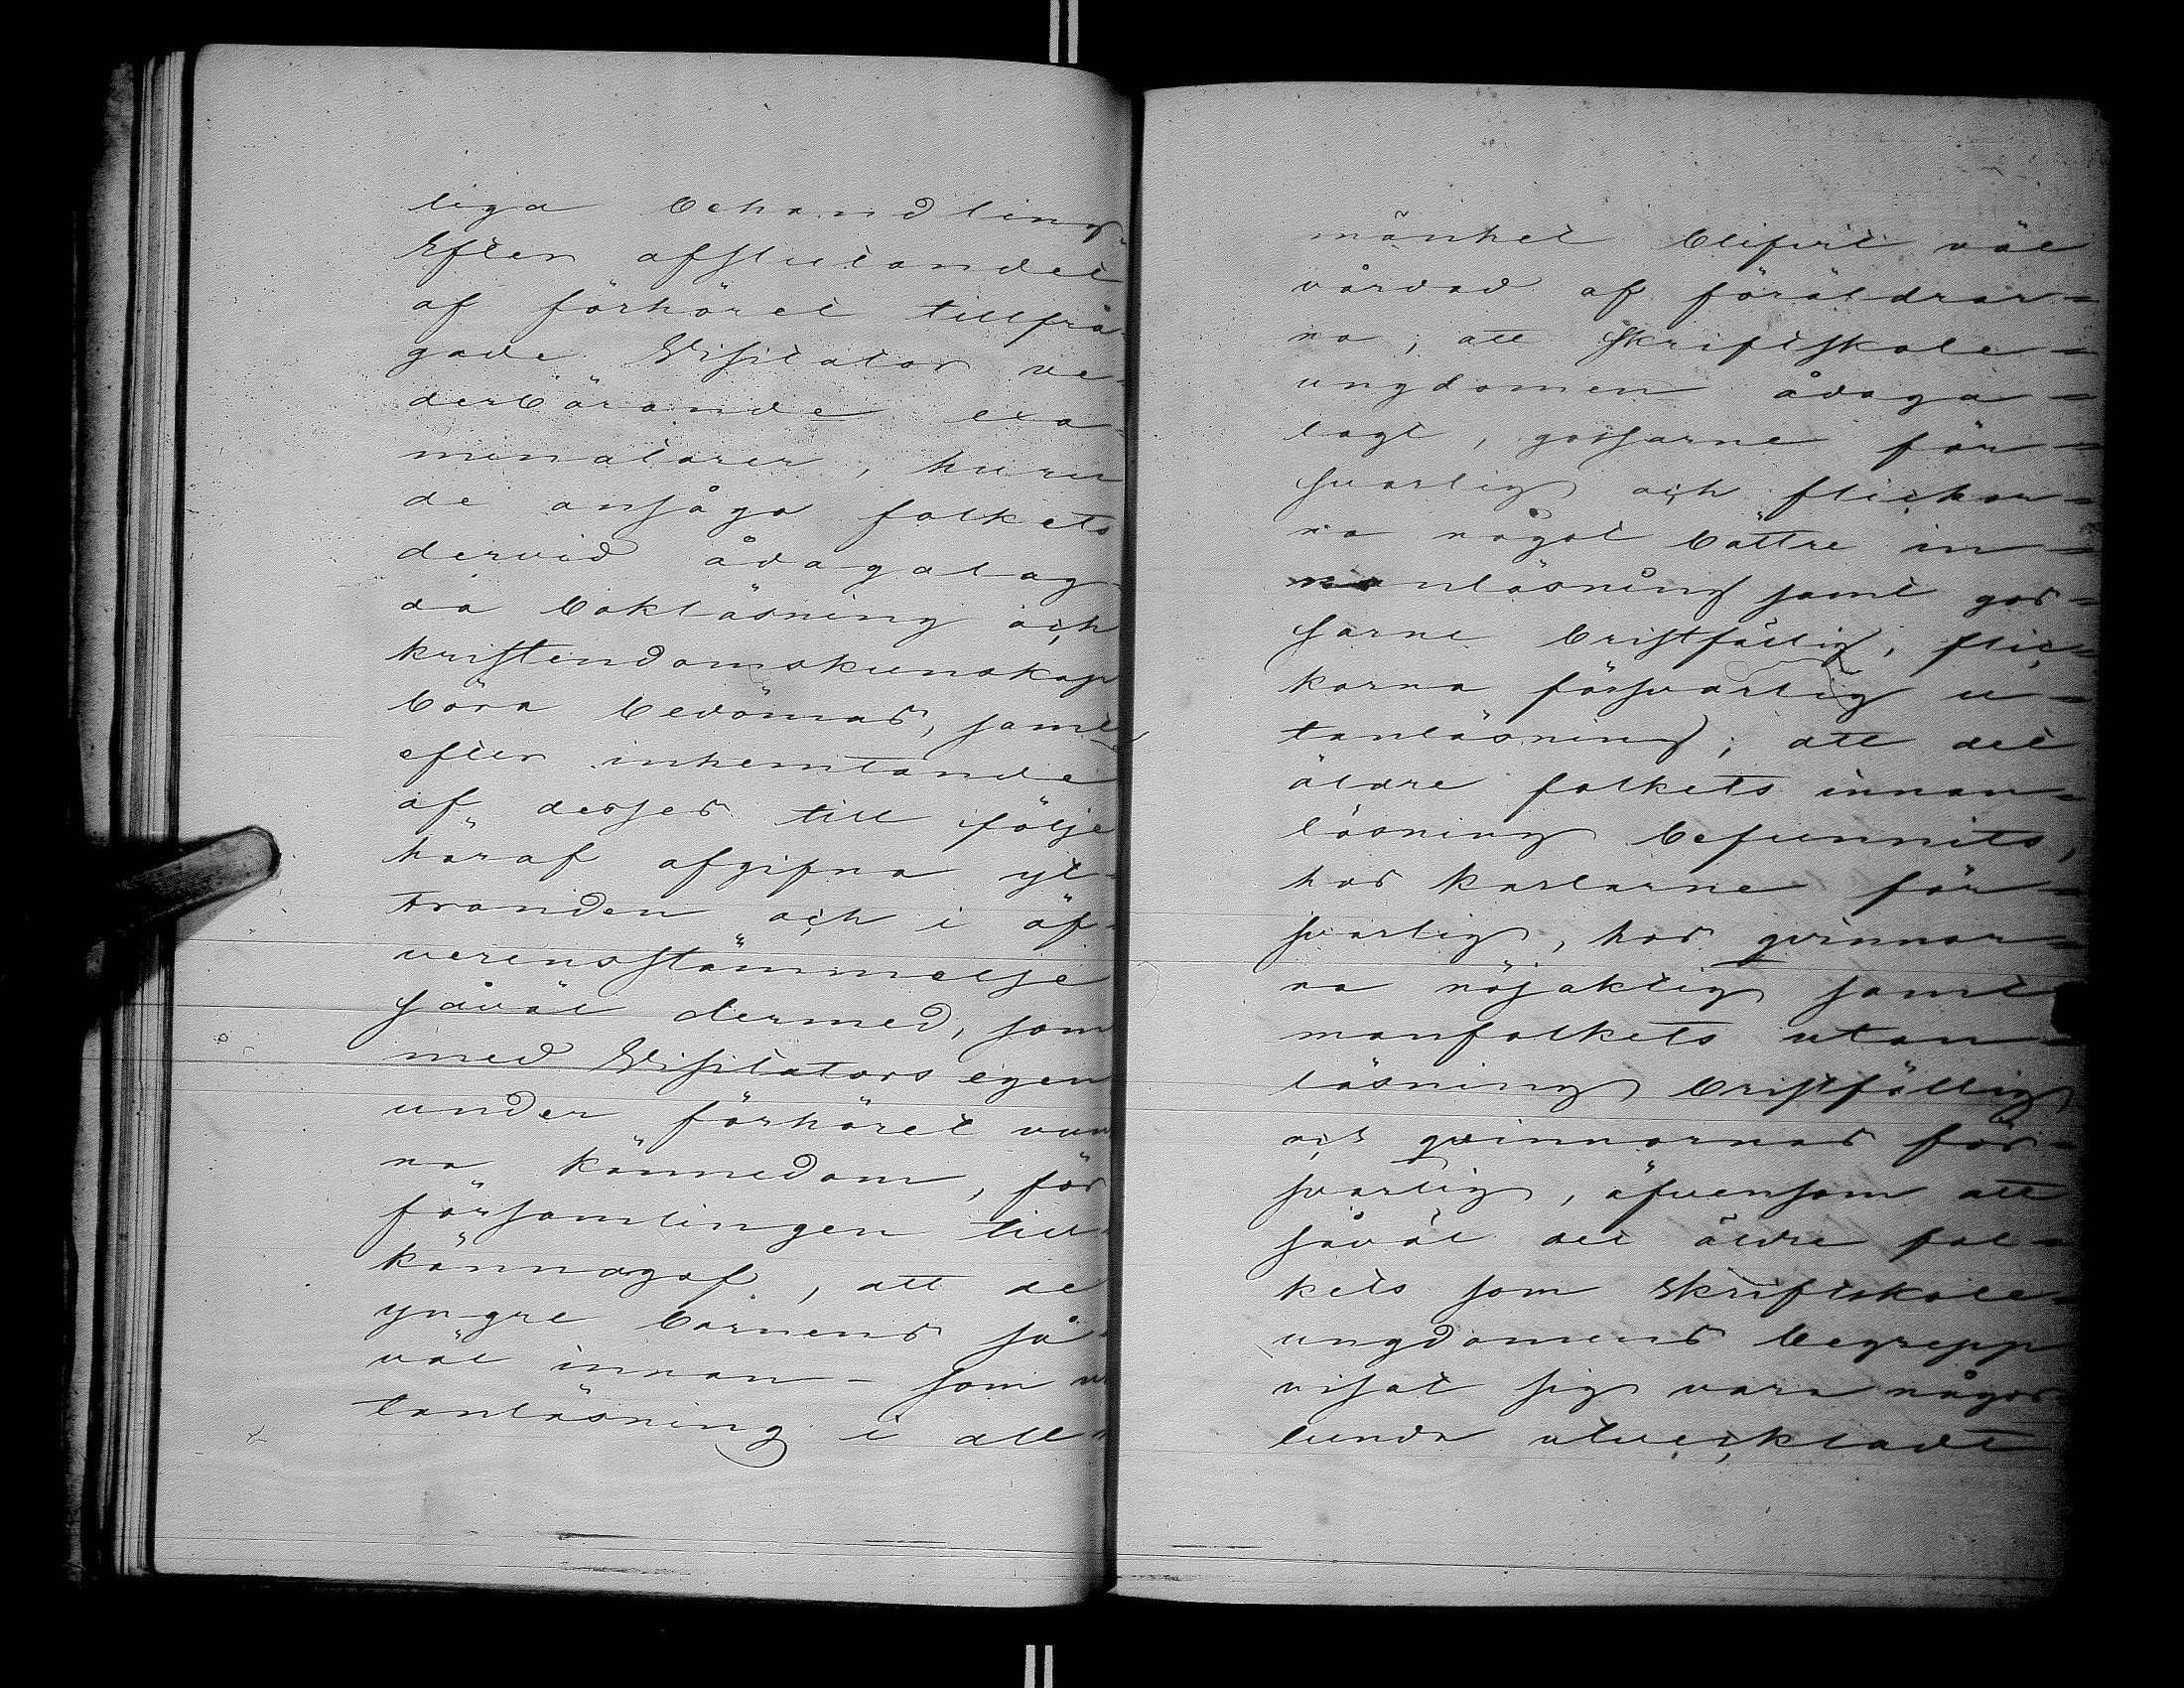 liga behandling.
Efter afslutandet
af förhöret tillfrå-
gade Visitator ve-
derbörande exa-
minatorer, huru
de ansågo folkets
dervid ådagalag
da bokläsning och
kristendomskunskap
böra bedömas, samt
efter inhemtande
af desses till följe
häraf afgifna yt-
tranden och i öf-
verensstämmelse
såväl dermed, som
med Visitators egen
under förhöret vun
na kännedom, för
församlingen till-
kännagaf, att de
yngre barnens så-
väl innan- som u
tanläsning i all-
mänhet blifvit väl
vårdad af föräldrar-
na; att skriftskole-
ungdomen ådaga-
lagt, gossarne för-
svarlig och flickor-
na något bättre in-
nanläsning samt gos-
sarne bristfällig, flic-
korna försvarlig u-
tanläsning; att det
äldre folkets innan-
läsning befunnits,
hos karlarne för-
svarlig, hos qvinnor-
na nöjaktig samt
manfolkets utan-
läsning bristfällig
och qvinnornas för-
svarlig, äfvensom att
såväl det äldre fol-
kets som skriftskole-
ungdomens begrepp
visat sig vara någor-
lunda utveckladt